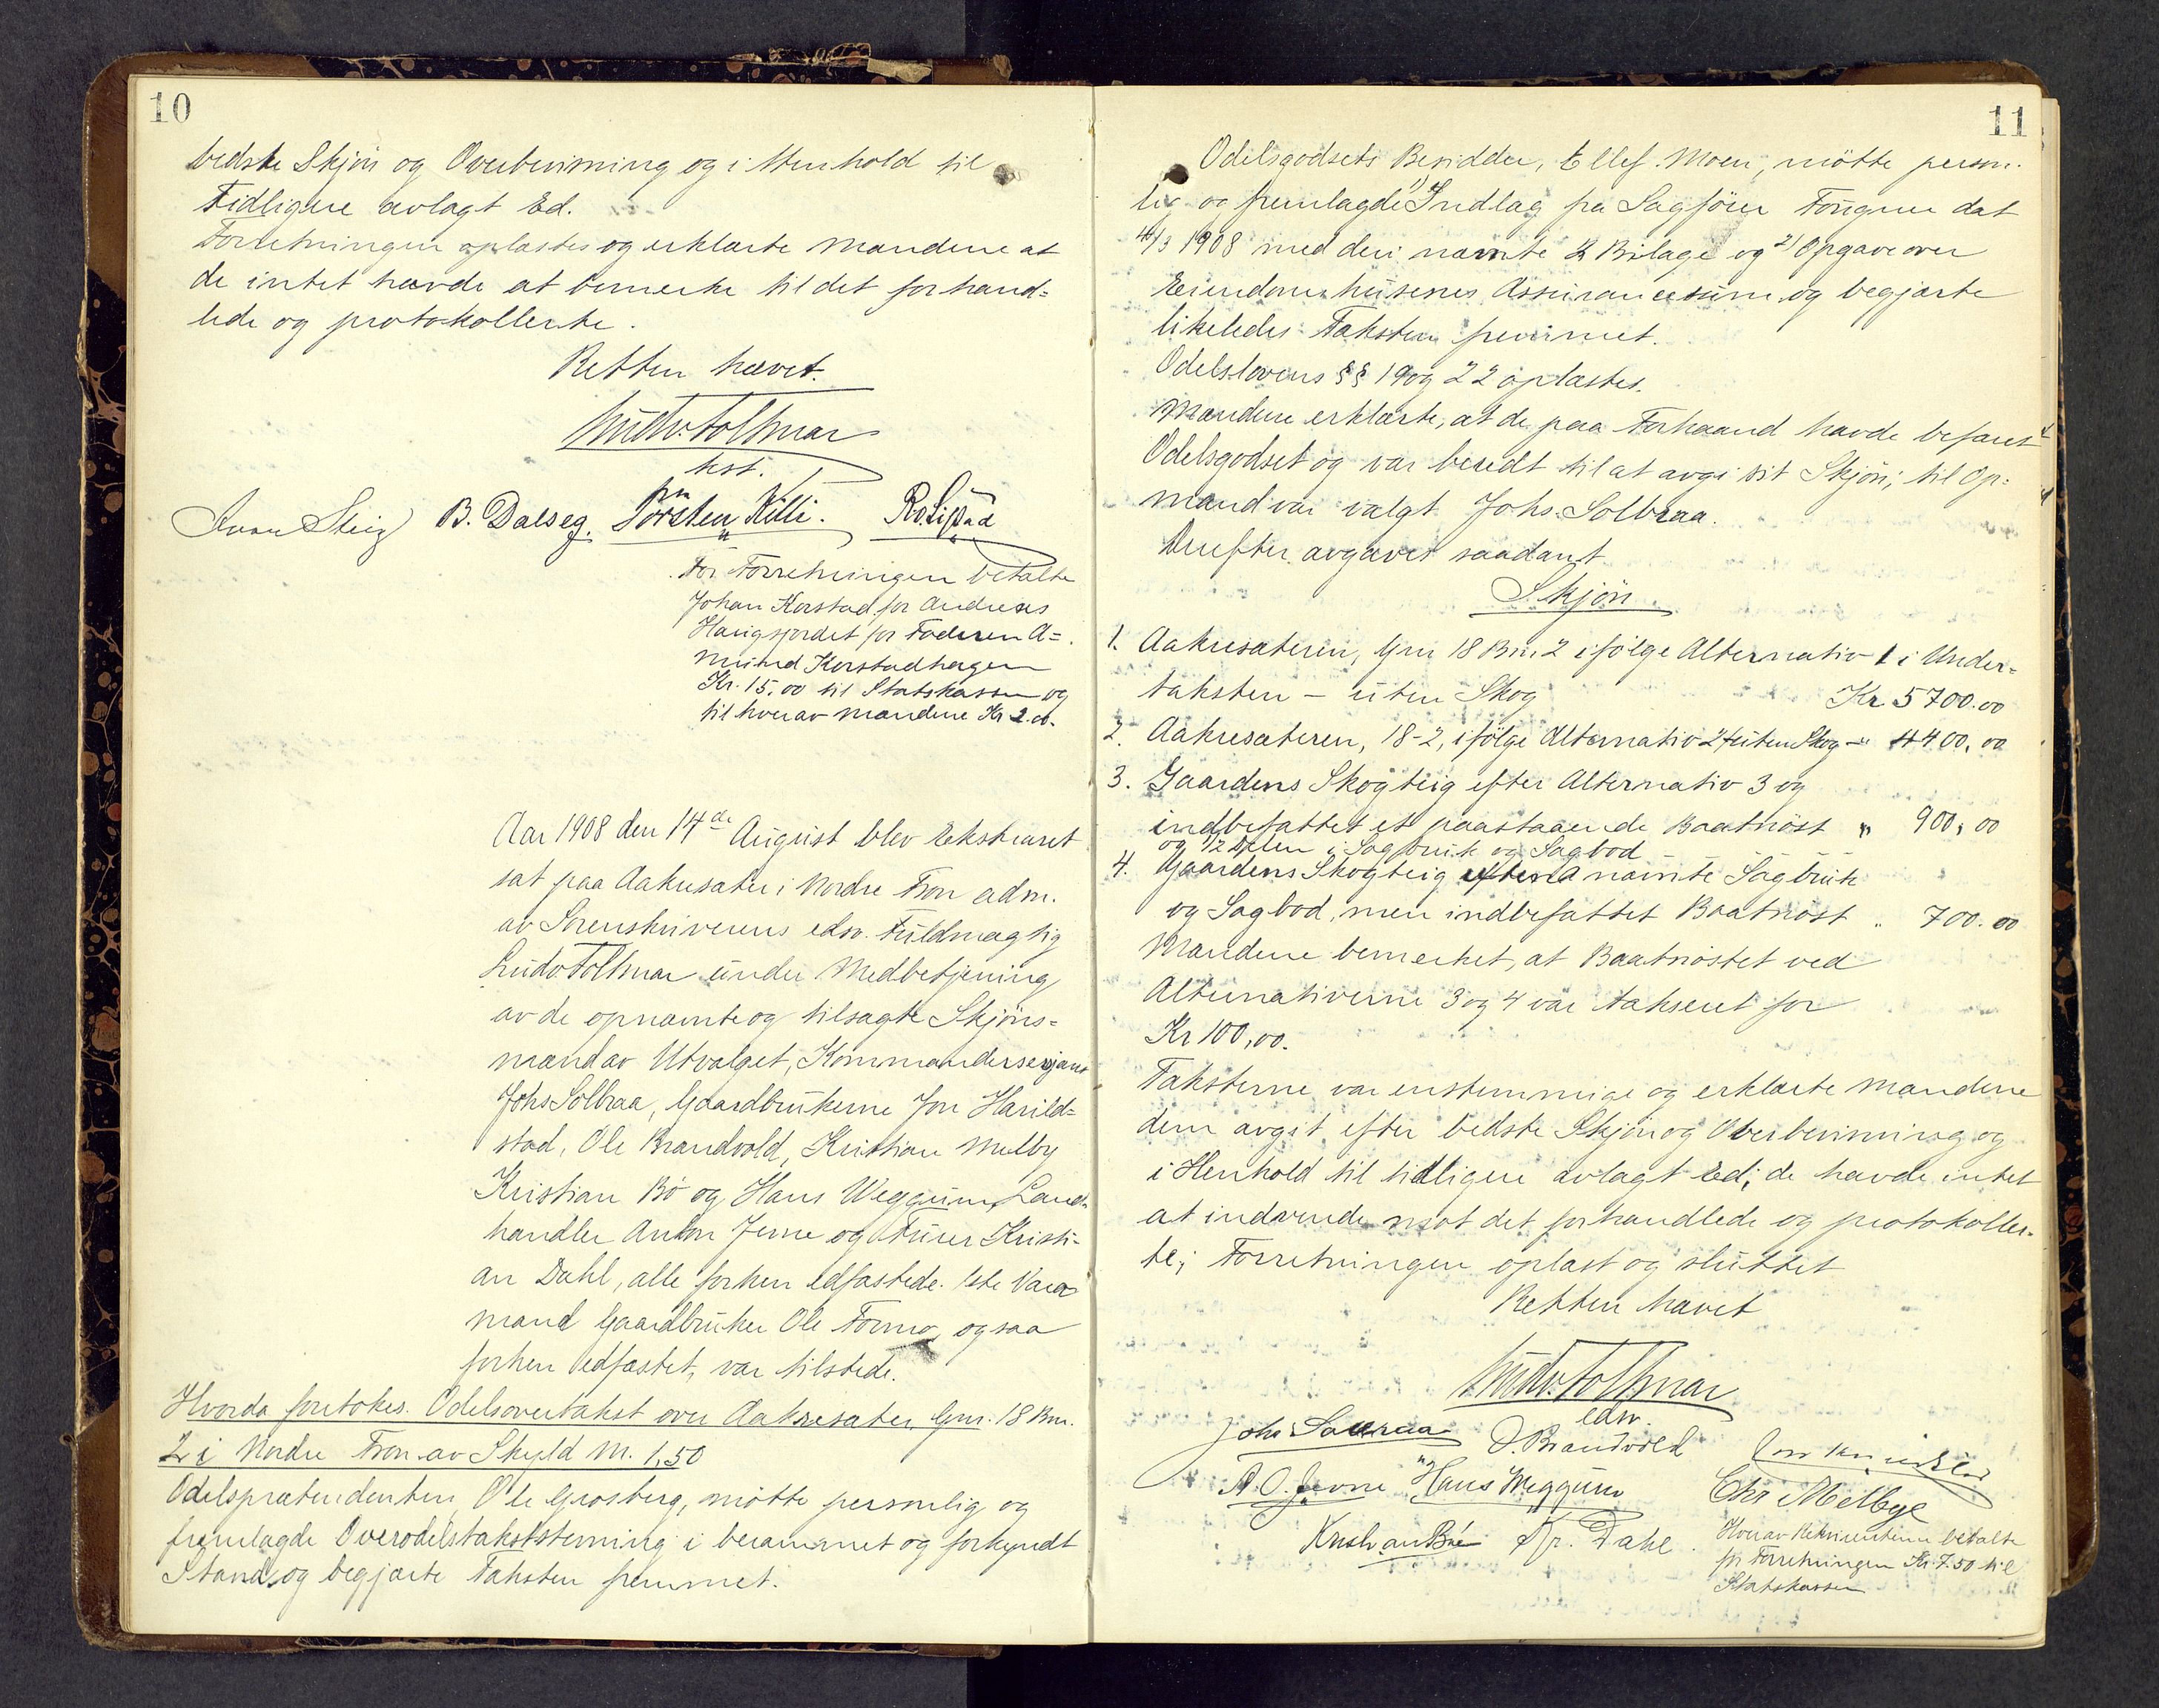 10
bedste Skjön og Overbevisning og i Henhold til
tidligere avlagt Ed.
Forretningen oplæstes og erklærte Mændene at
de intet hævde at bemerke til det forhand=
lede og protokollerte.
Retten hævet.
Ludv. Toltnar
kst.
Ivar Steig B. Dalseg. Torsten Killi.
For Forretningen betalte
Johan Korstad for Andreas
Haugsjordet for Faderen A=
mund Korstadhagen
Kr. 15,00 til Statskassen og
til hver av Mændene Kr 2.00.
Aar 1908 den 14de August blev Ekstraret
sat paa Aakresæter i Nordre Fron adm.
av Sorenskriverens edsv. Fuldmægtig
Ludv Toltnar under Medbetjening
av de opnævnte og tilsagte Skjöns=
mænd av Utvalget, Kommandersergant
Johs Solbraa, Gaardbrukerne Jon Harild=
stad, Ole Brandvold, Kristian Melby
Kristian Bö og Hans Weggum, Land=
handler Anton Jevne og Furer Kristi=
an Dahl, alle forhen edfæstede. 1ste Vara
mand Gaardbruker Ole Formo, ogsaa
forhen edfæstet, var tilstede.
Hvorda foretokes. Odelsovertakst over Aakresæter, Gnr. 18 Bnr.
2 i Nordre Fron av Skyld M. 1,50
Odelsprætendenten, Ole Grosberg, mötte personlig og
fremlagde Overodelstakststevning i berammet og forkyndt
Stand, og begjærte Taksten fremmet.
11
Odelsgodsets Besidder, Ellef Moen, mötte person-
lig og fremlagde 1) Indlæg fra Sagförer Fougner dat
4/3 1908 med deri nævnte 2 Bilage og 2) Opgave over
Eiendomshusenes Assurancesum og begjærte
likeledes Taksten fremmet.
Odelslovens §§ 19 og 22 oplæstes.
Mændene erklærte, at de paa Forhaand havde befaret
Odelsgodset og var beredt til at avgi sit Skjön; til Op-
mand var valgt Johs. Solbraa.
Derefter avgaves saadant
Skjön.
1. Aakresæteren, Gnr 18 Bnr. 2 ifölge Alternativ 1 i Under=
taksten – uten Skog Kr 5700.00
2. Aakresæteren, 18-2, ifölge Alternativ 2 uten Skog - 4400,00
3. Gaardens Skogteig efter Alternativ 3 og
indbefattet et paastaaende Baatnöst " 900,00
og 1/2 Delen i Sagbruk og Sagbod
4. Gaardens Skogteig nævnte Sagbruk
og Sagbod, men indbefattet Baatnöst " 700.00
Mændene bemerket, at Baatnöstet ved
Alternativerne 3 og 4 var takseret for
Kr 100,00.
Taksterne var enstemmige og erklærte Mændene
dem avgit efter bedste Skjön og Overbevisning og
i Henhold til tidligere avlagt Ed; de havde intet
at indvende mot det forhandlede og protokoller-
te; Forretningen oplæst og sluttet
Retten hævet
Ludv. Toltnar
edsv.
Johs Solbraa O. Brandvold
A. O. Jevne Hans Weggum Chr Melbye
Kristian Bö Kr. Dahl.
Hver av Rekvirentene betalte
for Forretningen Kr. 7.50 til
Statskassen